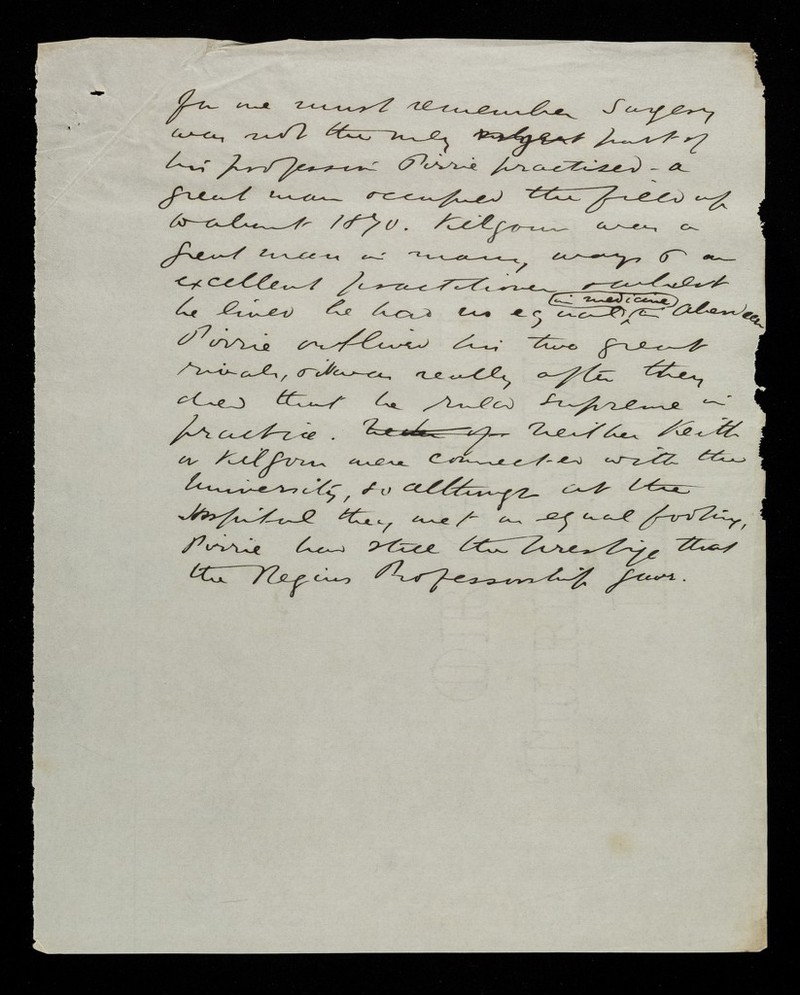 for one must remember Surgery
was not the only subject part of
his profession Pirrie practised - a
great man occupied the field up
to about 1870. Kilgour was a
great man in many ways & an
excellent practitioner & whilst
he lived he had no equal in medicine in Aberdeen
Pirrie outlived his two great
rivals, & it was really after they
died that he ruled supreme in
practice. Neither Keith
or Kilgour were connected with the
University, so although at the
Hospital they met on equal footing,
Pirrie had still the prestige that
the Regius Professorship gave.